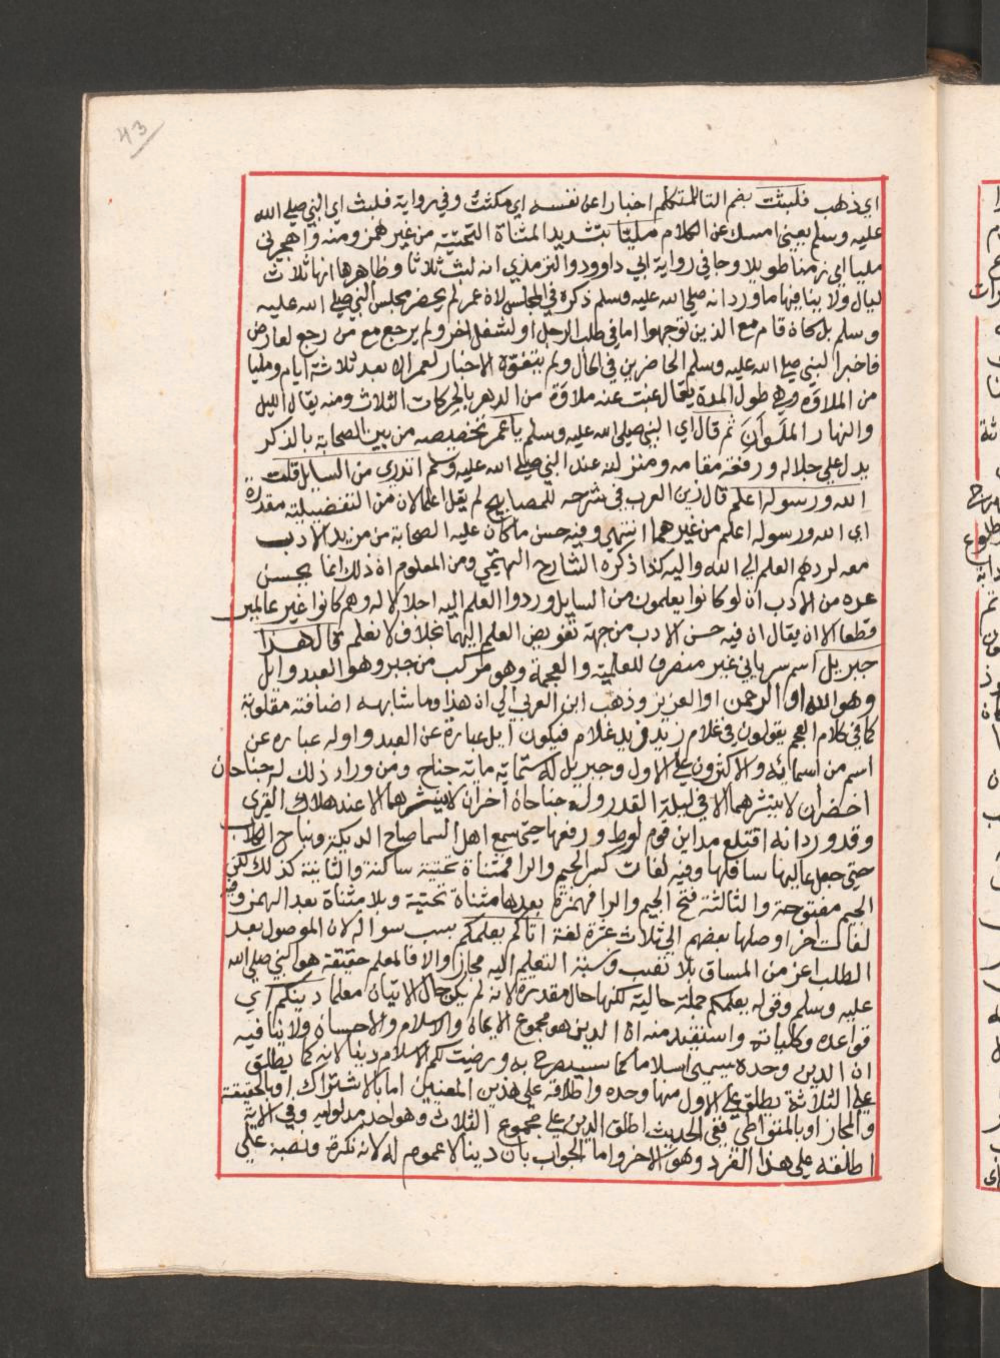 43
اي ذهب فلبثت بضم التا للمتكلم اخبارا عن نفسه اي مكثت وفي رواية فلبث اي النبي صلي الله
عليه وسلم يعني امسك عن الكلام مليّا بتشديد المثناة التحتيّة من غير همز ومنه واهجرني
مليا اي زمنا طويلا وجا في رواية ابي داوود والترمذي انه لبث ثلاثا وظاهرها انها ثلاث
ليال ولا ينافيها ما ورد انه صلي الله عليه وسلم ذكره في المجلس لان عمر لم يحضر مجلس النبي صلي الله عليه
وسلم بل كان قام مع الذين توجهوا اما في طلب الرجل او لشغل اخر ولم يرجع مع من رجع لعارض
فاخبر النبي صلي الله عليه وسلم الحاضرين في الحال ولم يتفق الاخبار لعمر الا بعد ثلاثة ايام ومليا
من الملاوة وهي طول المدة يقال عشت عنه ملاوة من الدهر بالحركات الثلاث ومنه يقال الليل
والنهار الملوان ثم قال اي النبي صلي الله عليه وسلم يا عمر تخصيصه من بين الصحابة بالذكر
يدل علي جلاله ورفعة مقامه ومنزلته عند النبي صلي الله عليه وسلم اتدري من السايل قلت
الله ورسوله اعلم قال زين العرب في شرحه للمصابيح لم يقل اعلمان لان من التفضيلية مقدرة
اي الله ورسوله اعلم من غيرهما انتهي وفيه حسن ما كان عليه الصحابة من مزيد الادب
معه لردهم العلم الي الله واليه كذا ذكره الشارح الهيتمي ومن المعلوم ان ذلك انما يحسن
عده من الادب ان لو كانوا يعلمون من السايل وردوا العلم اليه اجلالا له وهم كانوا غير عالمين
قطعا الا ان يقال ان فيه حسن الادب من جهة تفويض العلم اليهما بخلاف لا نعلم قال هذا
جبريل اسم سرياني غير منصرف للعلمية والعجمة وهو مركب من جبر وهو العبد وايل
وهو الله او الرحمن او العزيز وذهب ابن العربي الي ان هذا وما شابهه اضافته مقلوبة
كما في كلام العجم يقولون في غلام زيد زيد غلام فيكون ايل عبارة عن العبد واوله عبارة عن
اسم من اسمائه والاكثرون علي الاول وجبريل له ستماية ماية جناح ومن وراء ذلك له جناحان
اخضران لا ينشرهما الا في ليلة القدر وله جناحان اخران لا ينشرهما الا عند هلاك القري
وقد ورد انه اقتلع مداين قوم لوط ورفعها حتي سمع اهل السما صياح الديكة ونباح الكلاب
حتي جعل عاليها سافلها وفيه لغات كسر الجيم والرا فمثناة تحتية ساكنة والثانية كذلك لكن
الجيم مفتوحة والثالثة فتح الجيم والرا فهمزة بعدها مثناة تحتية وبلا مثناة بعد الهمز وفيه
لغات اخر اوصلها بعضهم الي ثلاث عشرة لغة اتاكم يعلمكم بسبب سواله لان الموصول بعد
الطلب اعز من المساق بلا تعب ونسبة التعليم اليه مجاز والا فالمعلم حقيقة هو النبي صلي الله
عليه وسلم وقوله يعلمكم جملة حالية لكنها حال مقدرة لانه لم يكن حال الاتيان معلما دينكم اي
قواعده وكلياته واستفيد منه ان الدين هو مجموع الايمان والاسلام والاحسان ولا ينافيه
ان الدين وحده يسمي اسلاما كما سيصرح به ورضيت لكم الاسلام دينا لانه كما يطلق
علي الثلاثة يطلق علي الاول منها وحده واطلاقه علي هذين المعنيين اما بالاشتراك او بالحقيقة
والمجاز او بالمتواطي ففي الحديث اطلق الدين علي مجموع الثلاث وهو احد مدلوليه وفي الاية
اطلقه علي هذا الفرد وهو الاخر واما الجواب بان دينا لا عموم له لانه نكرة ونصبه علي